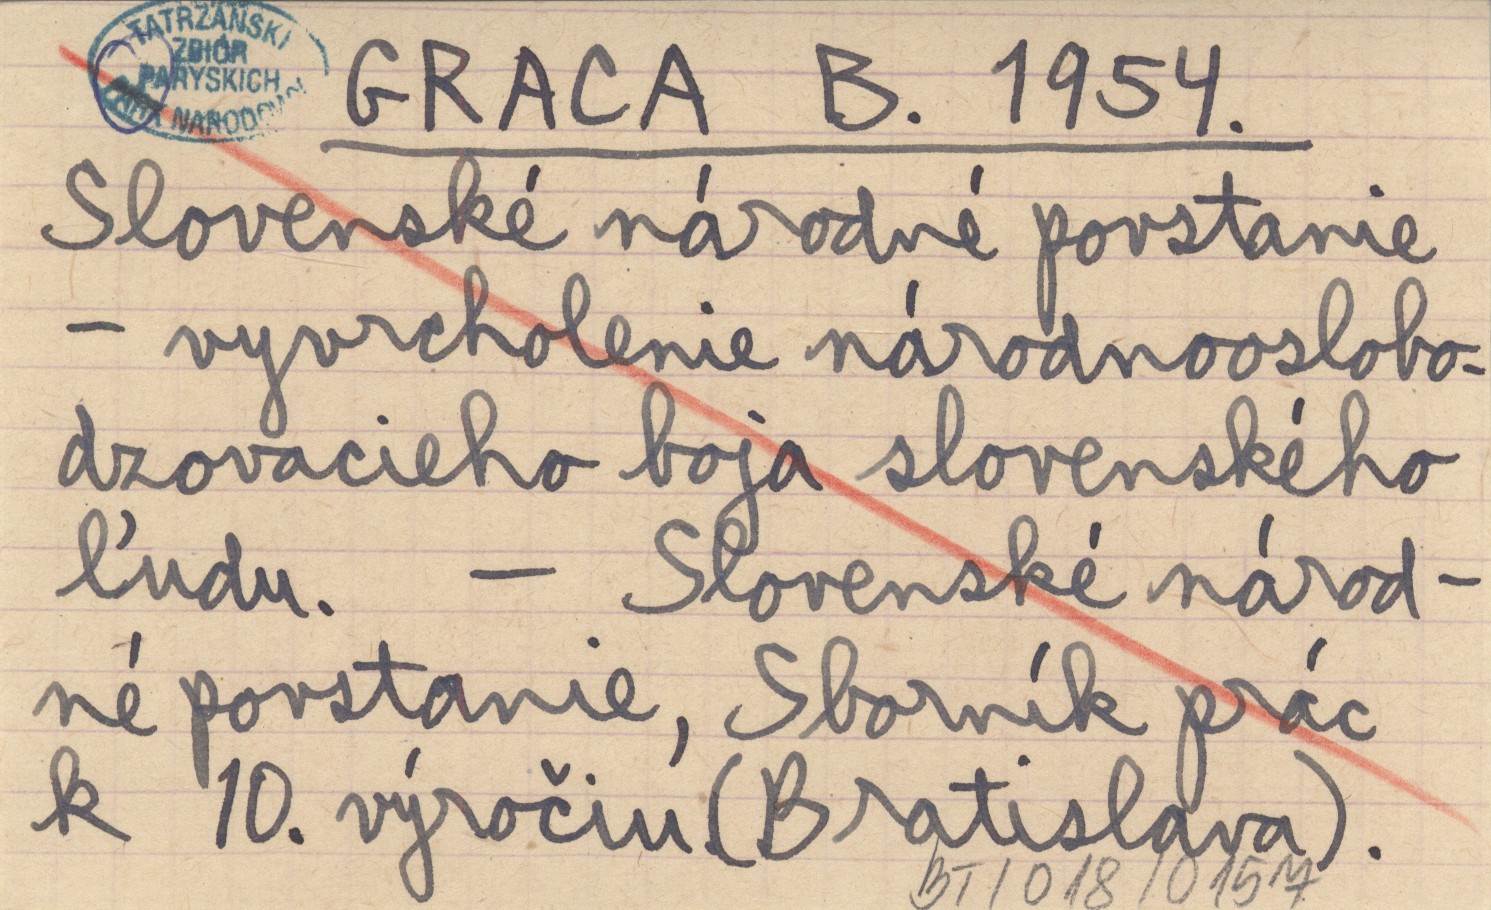 TATRZAŃSKI
ZBIÓR
PARYSKICH
PARK NARODOWY
GRACA B. 1954.
Slovenské národné povstanie
– vyvrcholenie národnooslobo-
dzovacieho boja slovenského
ľudu. — Slovenské národ-
né povstanie, Sborník prác
k 10. výročiu (Bratislava).
BT/018/015